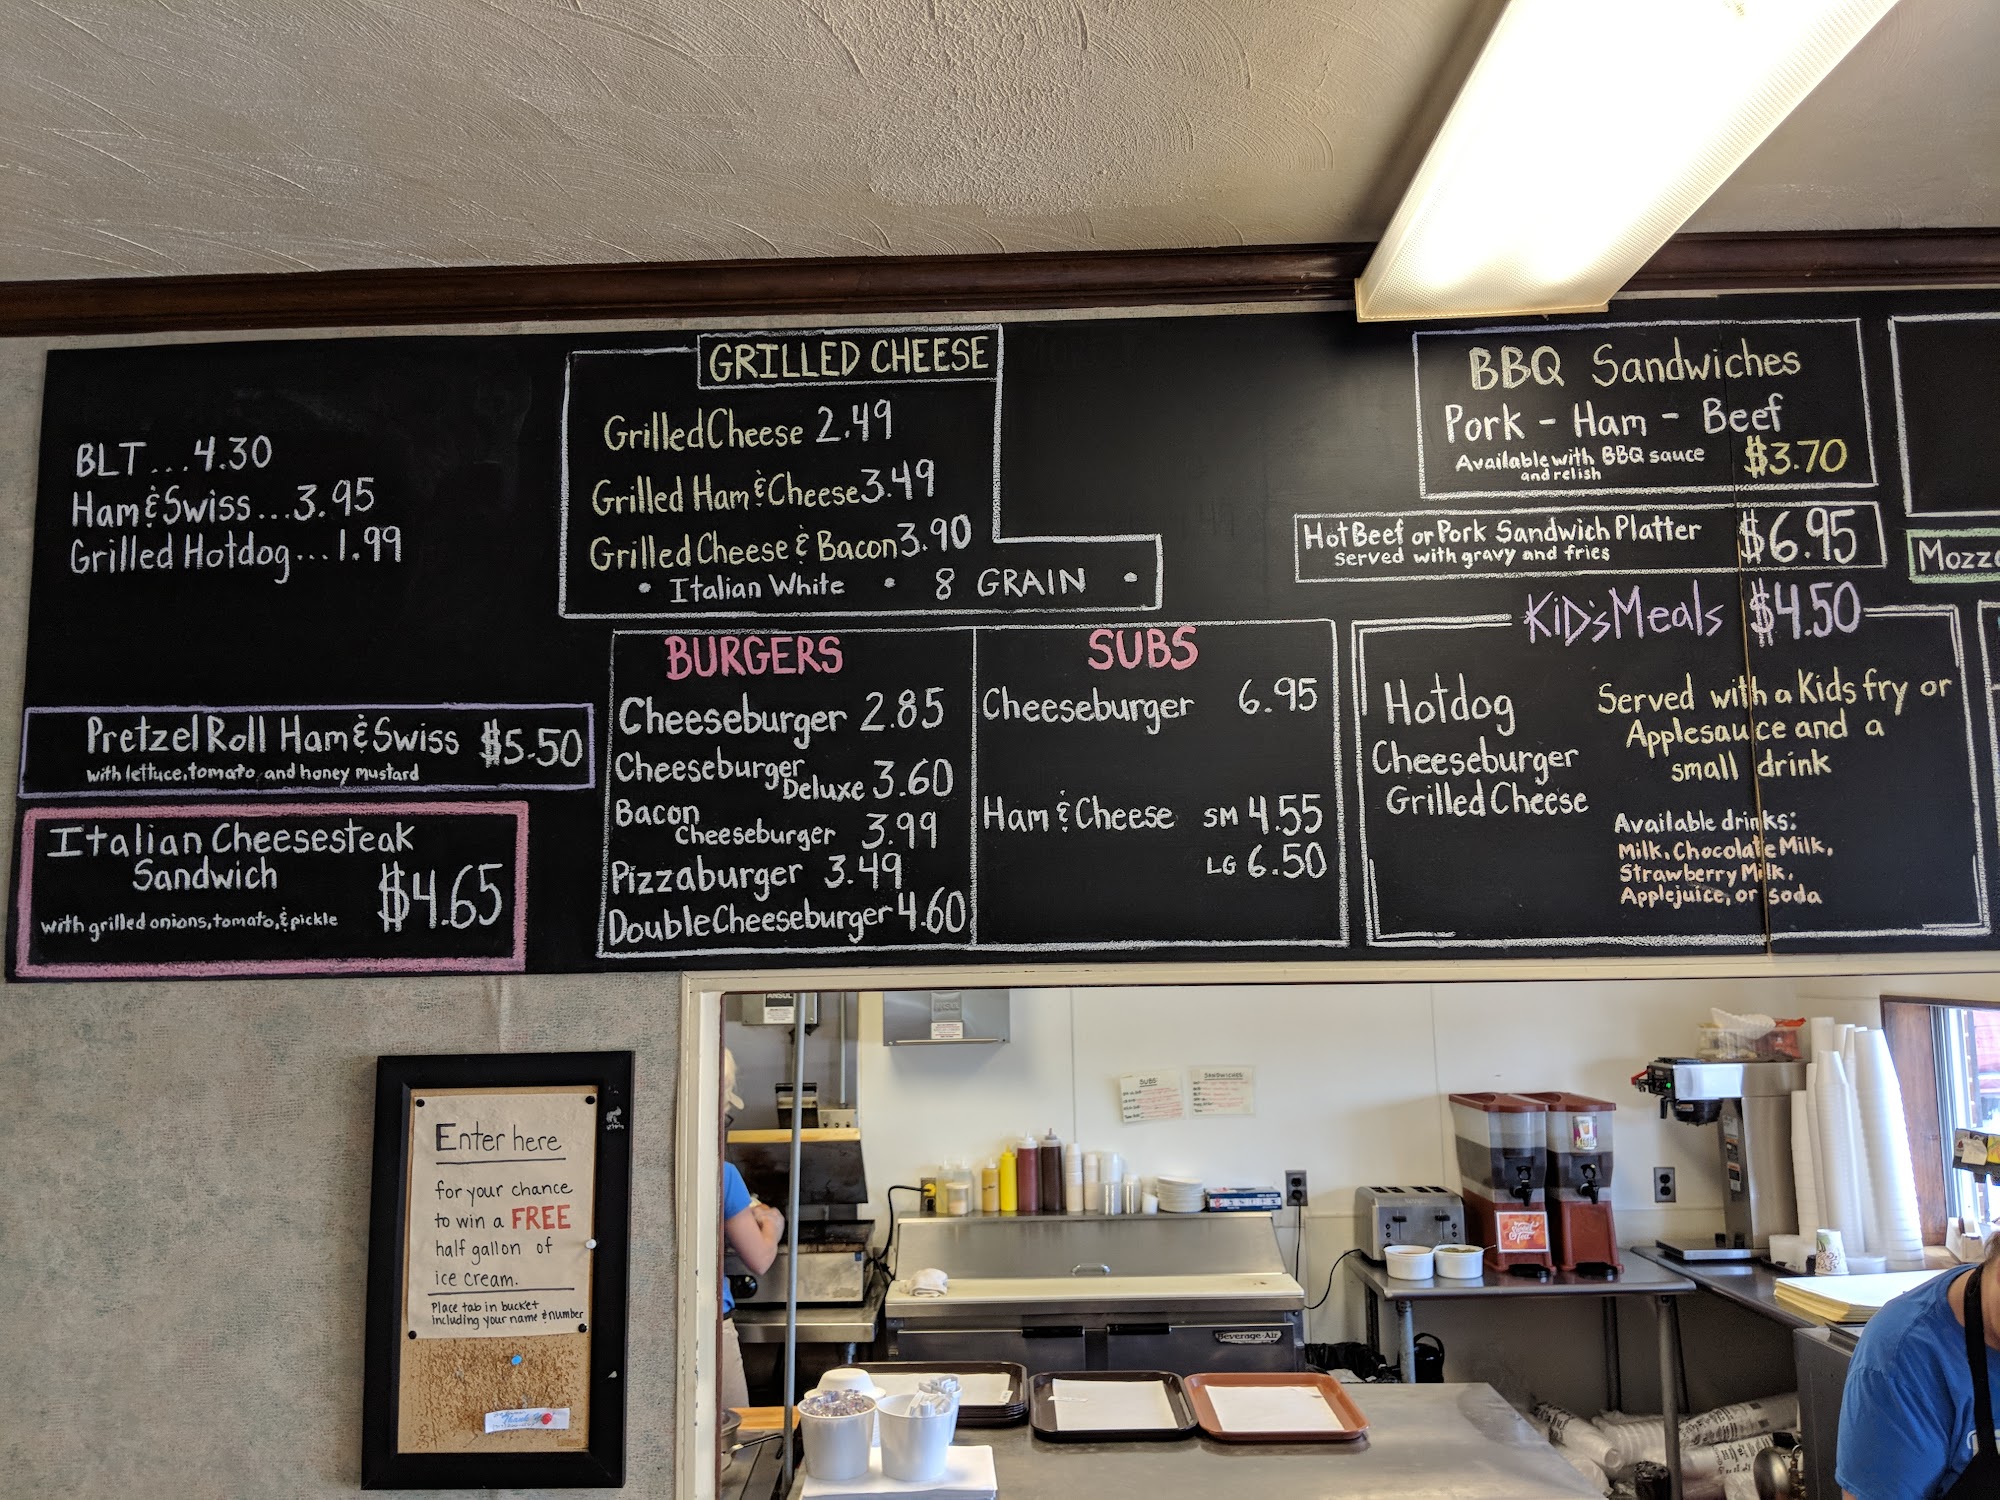 BLT...4.30
Ham & Swiss...3.95
Grilled Hotdog...1.99
Pretzel Roll Ham & Swiss $5.50
with lettuce, tomato, and honey mustard
Italian Cheesesteak
Sandwich
$4.65
with grilled onions, tomato, & pickle
GRILLED CHEESE
Grilled Cheese 2.49
Grilled Ham & Cheese 3.49
Grilled Cheese & Bacon 3.90
• Italian White • 8 GRAIN •
BURGERS
Cheeseburger 2.85
Cheeseburger
Deluxe 3.60
Bacon
Cheeseburger 3.99
Pizzaburger 3.49
Double Cheeseburger 4.60
SUBS
Cheeseburger 6.95
Ham & Cheese SM 4.55
LG 6.50
BBQ Sandwiches
Pork - Ham - Beef
Available with BBQ sauce
and relish
$3.70
Hot Beef or Pork Sandwich Platter
served with gravy and fries
$6.95
KiD's Meals $4.50
Hotdog
Cheeseburger
Grilled Cheese
Served with a Kids fry or
Applesauce and a
small drink
Available drinks:
Milk, Chocolate Milk,
Strawberry Milk,
Applejuice, or soda
Enter here
for your chance
to win a FREE
half gallon of
ice cream.
Place tab in bucket
including your name & number
Thank You
ANSUL
SUBS:
SANDWICHES:
Beverage-Air